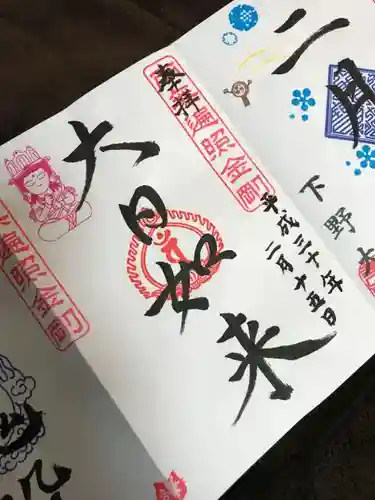 二月
下野大
奉拝
遍照金剛
大日如来
平成三十年
二月十五日
遍照金剛